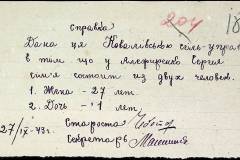 204
18
Справка
Дана ця Ковалівською сель-управ
в том що у Алефиренко Сергія
сім'я состоит из двух человек.
1. Жена - 27 лет.
2. Дочь - 1 лет.
27/IX-43г.
Староста
Секретарь